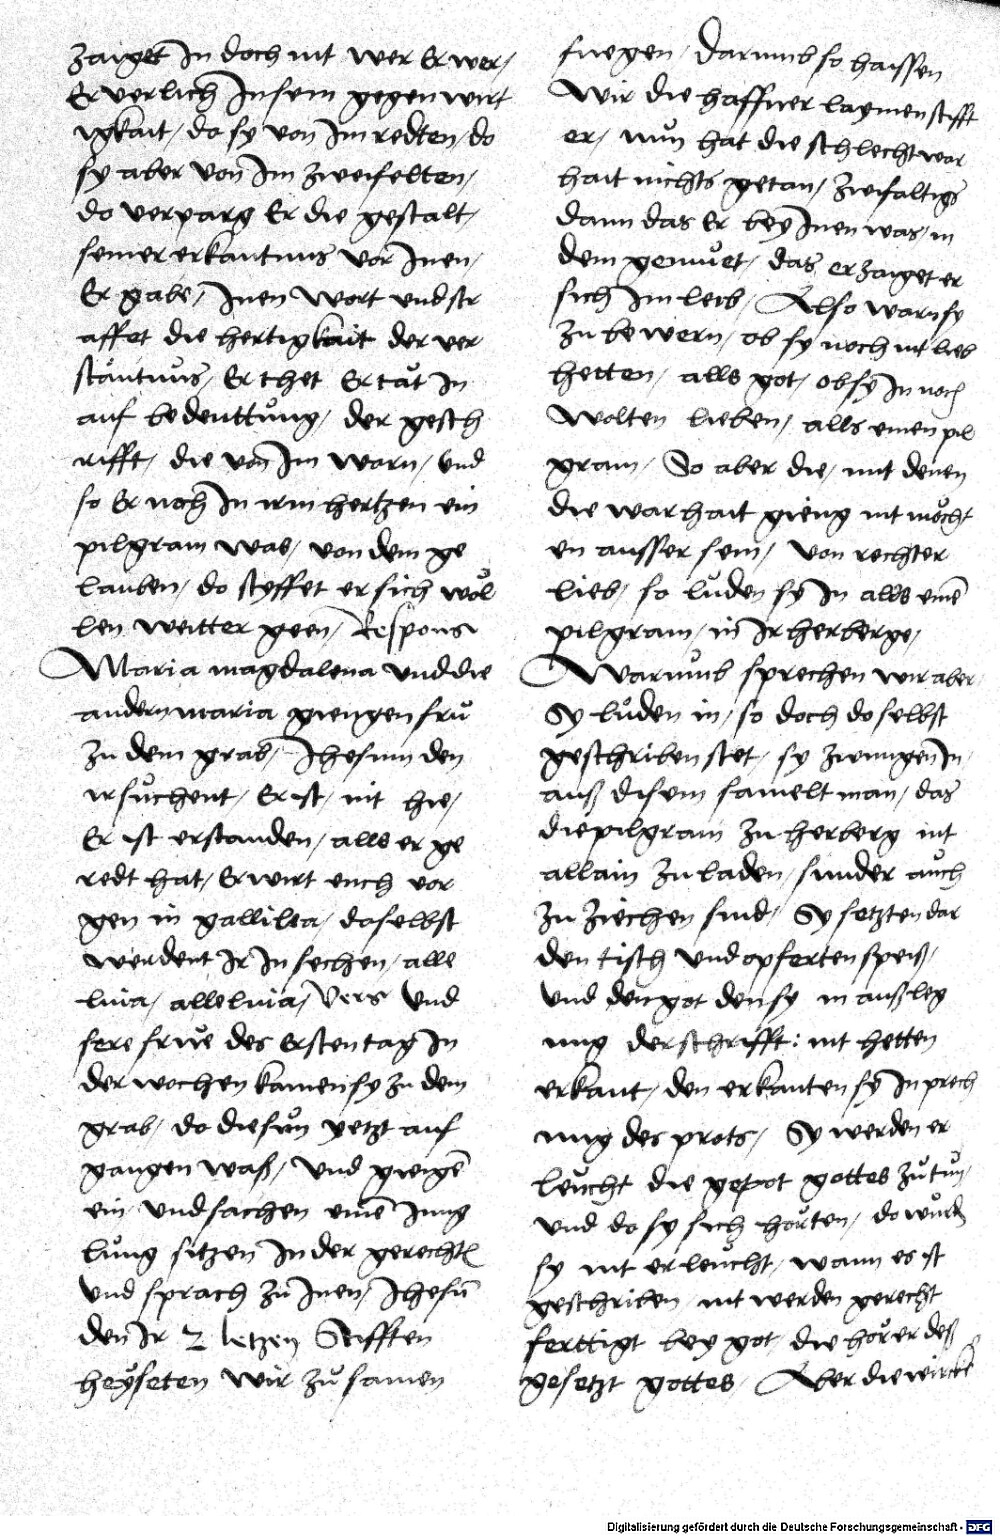 zaiget In doch nit wer Er wer /
Er verlich In seim gegenwirt
igkait / do sy von Im redten / do
sy aber von Im zweifelten /
do verparg Er die gestalt /
seiner erkantnus vor Inen /
Er gabe / Inen Wort und str
affet die hertigkait der ver
stäntnus / Er thet Er tät In
auf bedeuttung / der gesch
rifft / die von Im warn / und
so Er noch In irm hertzen ein
pilgram was / von dem ge
lauben / do styffet er sich wöl
len weitter geen / Respons
Maria magdalena und die
andern maria giengen frü
zu dem grab / Ihesum den
ir sůchent / Er ist / nit hie /
Er ist erstanden / alls er ge
redt hat / Er wirt euch vor
gen in gallilea / doselbst
werdent Ir In sechen / alle
luia / alleluia / Vers Und
sere frue des Ersten tag In
der wochen kamen sy zu dem
grab / do die sun yetzt auf
gangen waß / Und giengē
ein / und sachen einē Jung
ling sitzen In der gerechtē
Und sprach zu Inen / Ihesū
den Ir 2 letzen Stifften
heyseten wir zů samen
fuegen / Darumb so haissen
Wir die haffner laymen stifft
er / nun hat die schlecht war
hait nichts getan / zwifaltigs
dann das Er bey Inen was / in
dem gemuet / das erzaiget er
sich Im leib / Also warn sy
zu bewern / ob sy noch nit lieb
hetten / alls got / ob sy In noch
wolten lieben / alls einen pil
gram / So aber die / mit denen
die warhait gieng nit möcht
en ausser sein / von rechter
lieb / so lůden sy In alls einē
pilgram / in Ir herberge /
Warumb sprechen wir aber
Sy lůden in / so doch doselbst
geschriben stet / sy zwungen In /
auß disem samelt man / das
die pilgram zu herberg nit
allain zu laden / sunder auch
zu ziechen sind / Sy setzten dar
den tisch und opferten speiß /
Und den got den sy in außleg
ung der schrifft : nit hetten
erkant / den erkanten sy In prech
ung des prots / Sy werden er
leucht die gepot gottes zů tun /
und do sy sich horten / do wurdē
sy nit erleucht / wann es ist
geschriben / nit werden gerecht
ferttigt bey got / die hörer deß
gesetzt gottes / Aber die wirckē